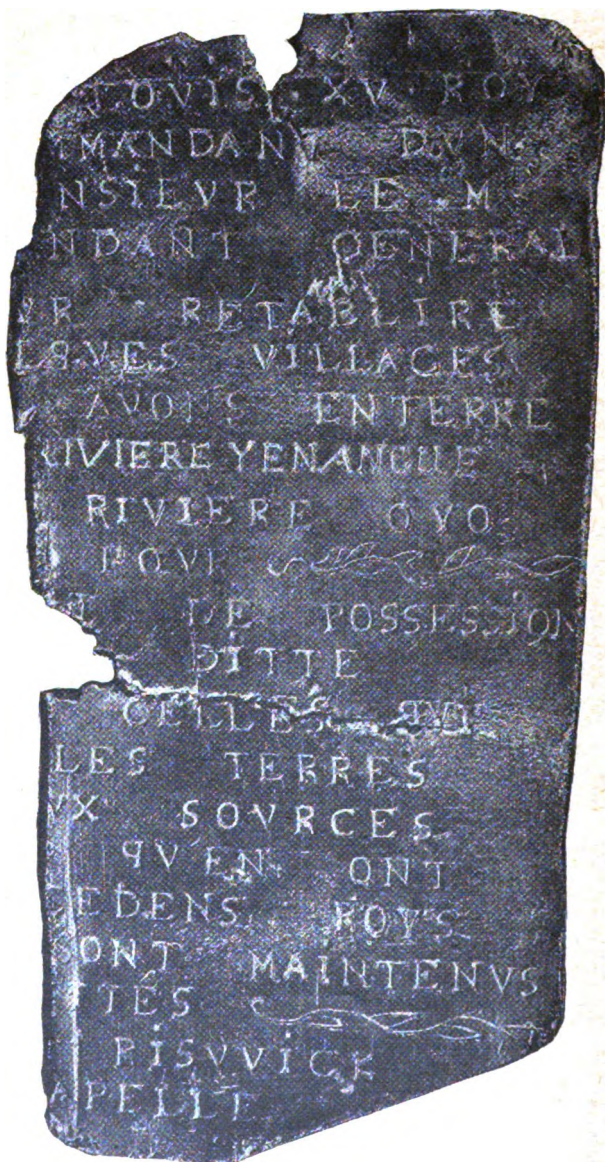 LOVIS · XV · ROY
MANDANT DVN
NSIEVR LE M
NDANT GENERAL
VR RETABLIRE
LQVES VILLAGES
AVONS ENTERRE
RIVIERE YENANGUE
RIVIERE OYO
POVR
DE POSSESSION
DITTE
CELLES QVI
LES TERRES
VX SOVRCES
QV'EN ONT
EDENS ROYS
SONT MAINTENVS
TÉS
RISVVICK
APELLE